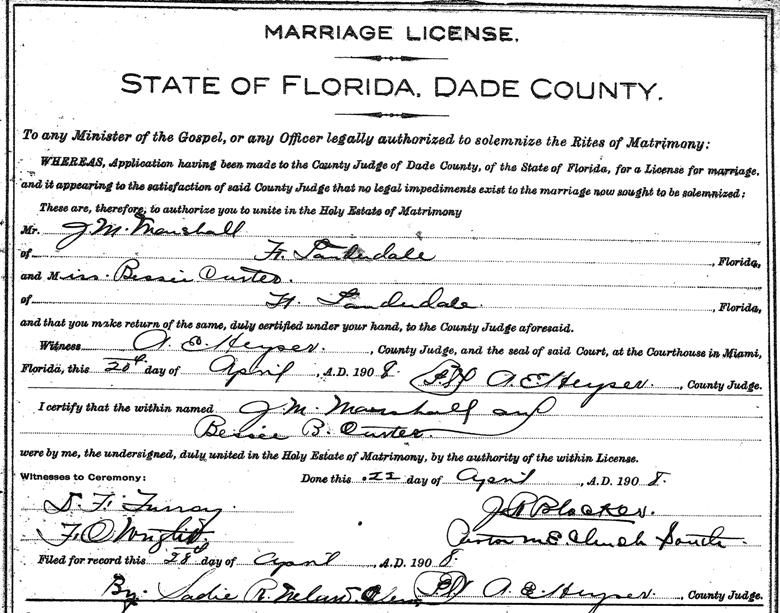 MARRIAGE LICENSE.
STATE OF FLORIDA, DADE COUNTY.
To any Minister of the Gospel, or any Officer legally authorized to solemnize the Rites of Matrimony:
WHEREAS, Application having been made to the County Judge of Dade County, of the State of Florida, for a License for marriage,
and it appearing to the satisfaction of said County Judge that no legal impediments exist to the marriage now sought to be solemnized;
These are, therefore, to authorize you to unite in the Holy Estate of Matrimony
Mr. J.M. Marshall
of Ft. Lauderdale, Florida,
and Miss Bessie
of Ft. Lauderdale, Florida,
and that you make return of the same, duly certified under your hand, to the County Judge aforesaid.
Witness A. E. Heyser, County Judge, and the seal of said Court, at the Courthouse in Miami,
Florida, this 20th day of April, A.D. 1908. A. E. Heyser, County Judge.
I certify that the within named J. M. Marshall and
Bessie B.
were by me, the undersigned, duly united in the Holy Estate of Matrimony, by the authority of the within License.
Witnesses to Ceremony: Done this 22 day of April, A.D. 1908.
J R Blocker.
F. O. Wright. Pastor M.E. Church South
Filed for record this 28th day of April A.D. 1908.
By. Sadie A. E. Heyser, County Judge.